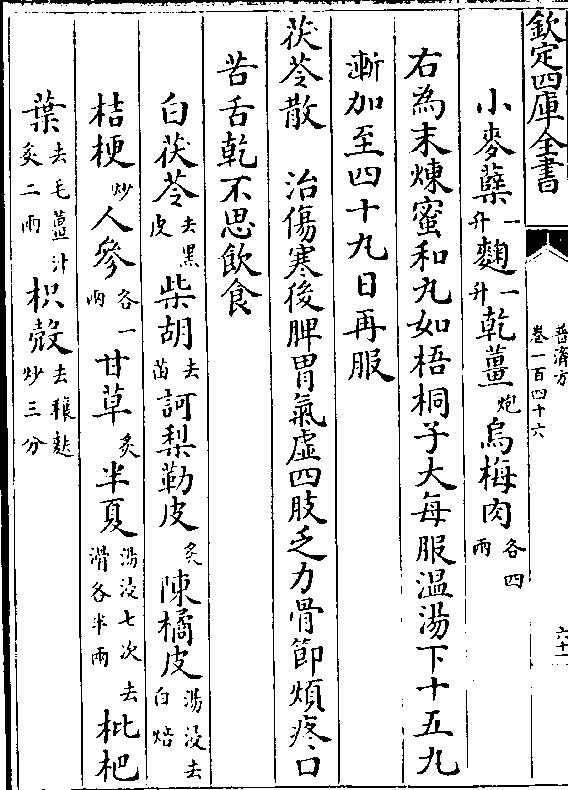 欽定四庫全書
普濟方
卷一百四十六
六十一
小麥糱一升麴一升乾薑炮烏梅肉各四兩
右為末煉蜜和丸如梧桐子大每服温湯下十五丸
漸加至四十丸日再服
茯苓散 治傷寒後脾胃氣虚四肢乏力骨節煩疼口
苦舌乾不思飲食
白茯苓去黑皮柴胡去苗訶梨勒皮炙陳橘皮湯浸去白焙
桔梗炒人參各一兩甘草炙半夏湯浸七次去滑各半兩枇杷
葉去毛薑汁炙二兩枳殻去穰麩炒三分